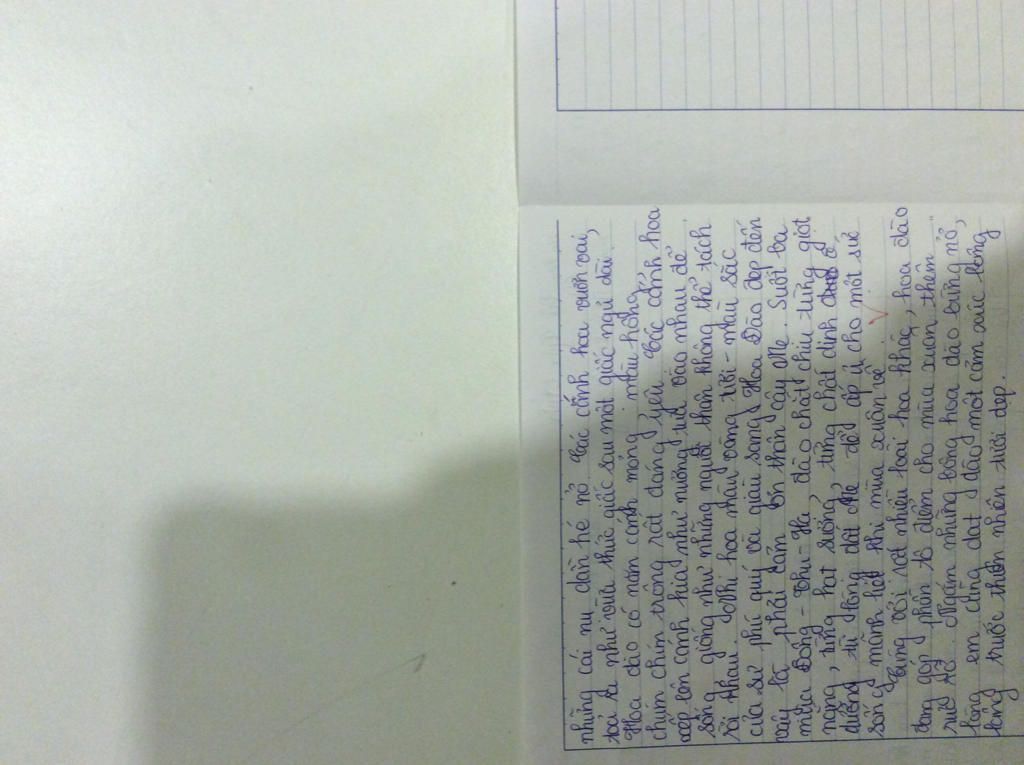 những cái nụ dần hé nở. Các cánh hoa vươn vai,
toả ra như vừa thức giấc sau một giấc ngủ dài.
Hoa đào có năm cánh mỏng, màu hồng,
chúm chím trông rất đáng yêu. Các cánh hoa
xếp lên cánh kia như nương tựa vào nhau để
sống giống như những người thân không thể tách
rời nhau. Nhị hoa màu vàng tươi - màu sắc
của sự phú quý và giàu sang. Hoa Đào đẹp đến
vậy là phải cảm ơn thân cây Mẹ. Suốt ba
mùa Đông - Thu - Hạ, đào chắt chiu từng giọt
nắng, từng hạt sương, từng chất dinh
dưỡng từ lòng đất Mẹ để ấp ủ cho một sức
sống mãnh liệt khi mùa xuân về.
Cùng với rất nhiều loài hoa khác, hoa đào
đang góp phần tô điểm cho mùa xuân thêm
rực rỡ. Ngắm những bông hoa đào bừng nở,
lòng em cũng dạt dào một cảm xúc lâng
lâng trước thiên nhiên tươi đẹp.